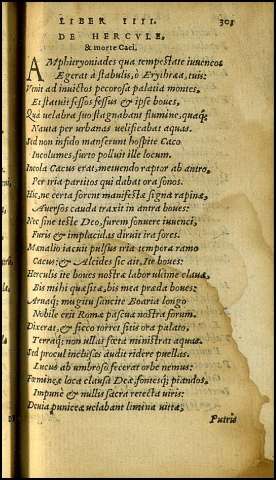 LIBER IIII. 303
DE HERCVLE,
& morte Caci.
AMphitryoniades qua tempestate iuuencos
Egerat à stabulis, ò Erythræa, tuis:
Venit ad inuictos pecorosa palatia montes,
Et statuit fessos fessus & ipse boues,
Quà velabra suo stagnabant flumine, quaq;
Nauta per urbanas uelificabat aquas.
Sed non infido manserunt hospite Caco
Incolumes, furto polluit ille locum.
Incola Cacus erat, metuendo raptor ab antro,
Per tria partitos qui dabat ora sonos.
Hic, ne certa forent manifestæ signa rapinæ,
Auersos cauda traxit in antra boues:
Nec sine teste Deo, furem sonuere iuuenci,
Furis & implacidas diruit ira fores.
Mænalio iacuit pulsus tria tempora ramo
Cacus: & Alcides sic ait, Ite boues:
Herculis ite boues nostræ labor ultime clauæ,
Bis mihi quæsitæ, bis mea præda boues:
Aruaq; mugitu sancite Boaria longo
Nobile erit Romæ pascua nostra forum.
Dixerat, & sicco torret sitis ora palato,
Terraq; non ullas fœta ministrat aquas.
Sed procul inclusas audit ridere puellas.
Lucus ab umbroso fecerat orbe nemus:
Fœmineæ loca clausa Deæ, fontesq; piandos,
Impune & nullis sacra retecta uiris:
Deuia puniceæ uelabant limina uittæ,
Putris